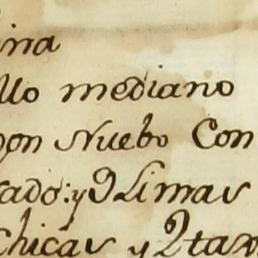 ina
llo mediano
on Nuebo Con
ado: y 9 Limas
chicas y 2